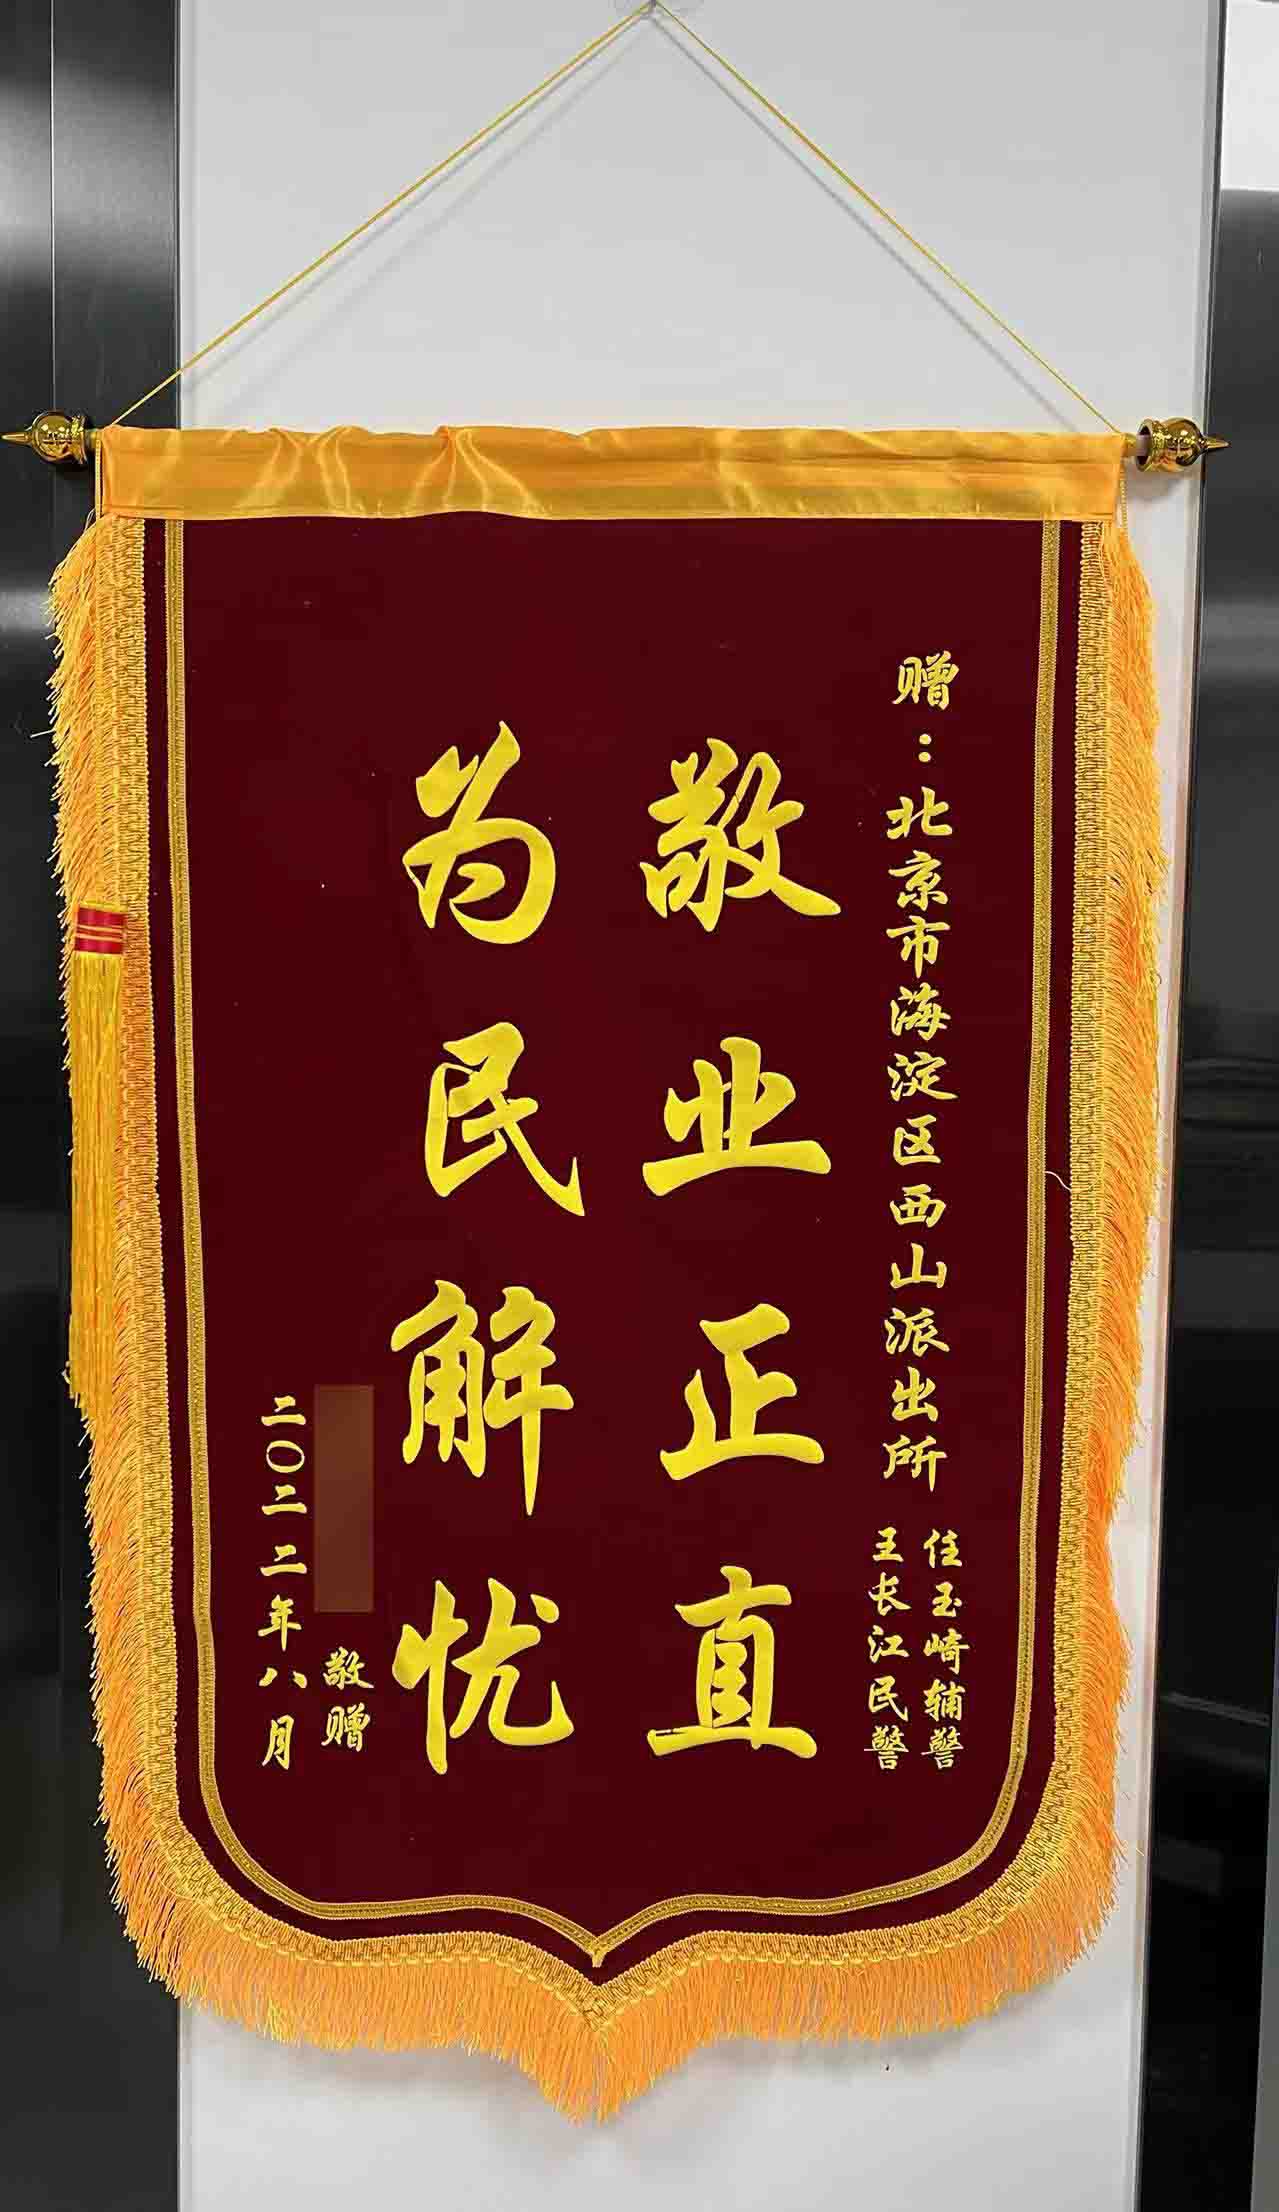 赠：北京市海淀区西山派出所
任玉崎辅警
王长江民警
敬业正直
为民解忧
敬赠
二〇二二年八月